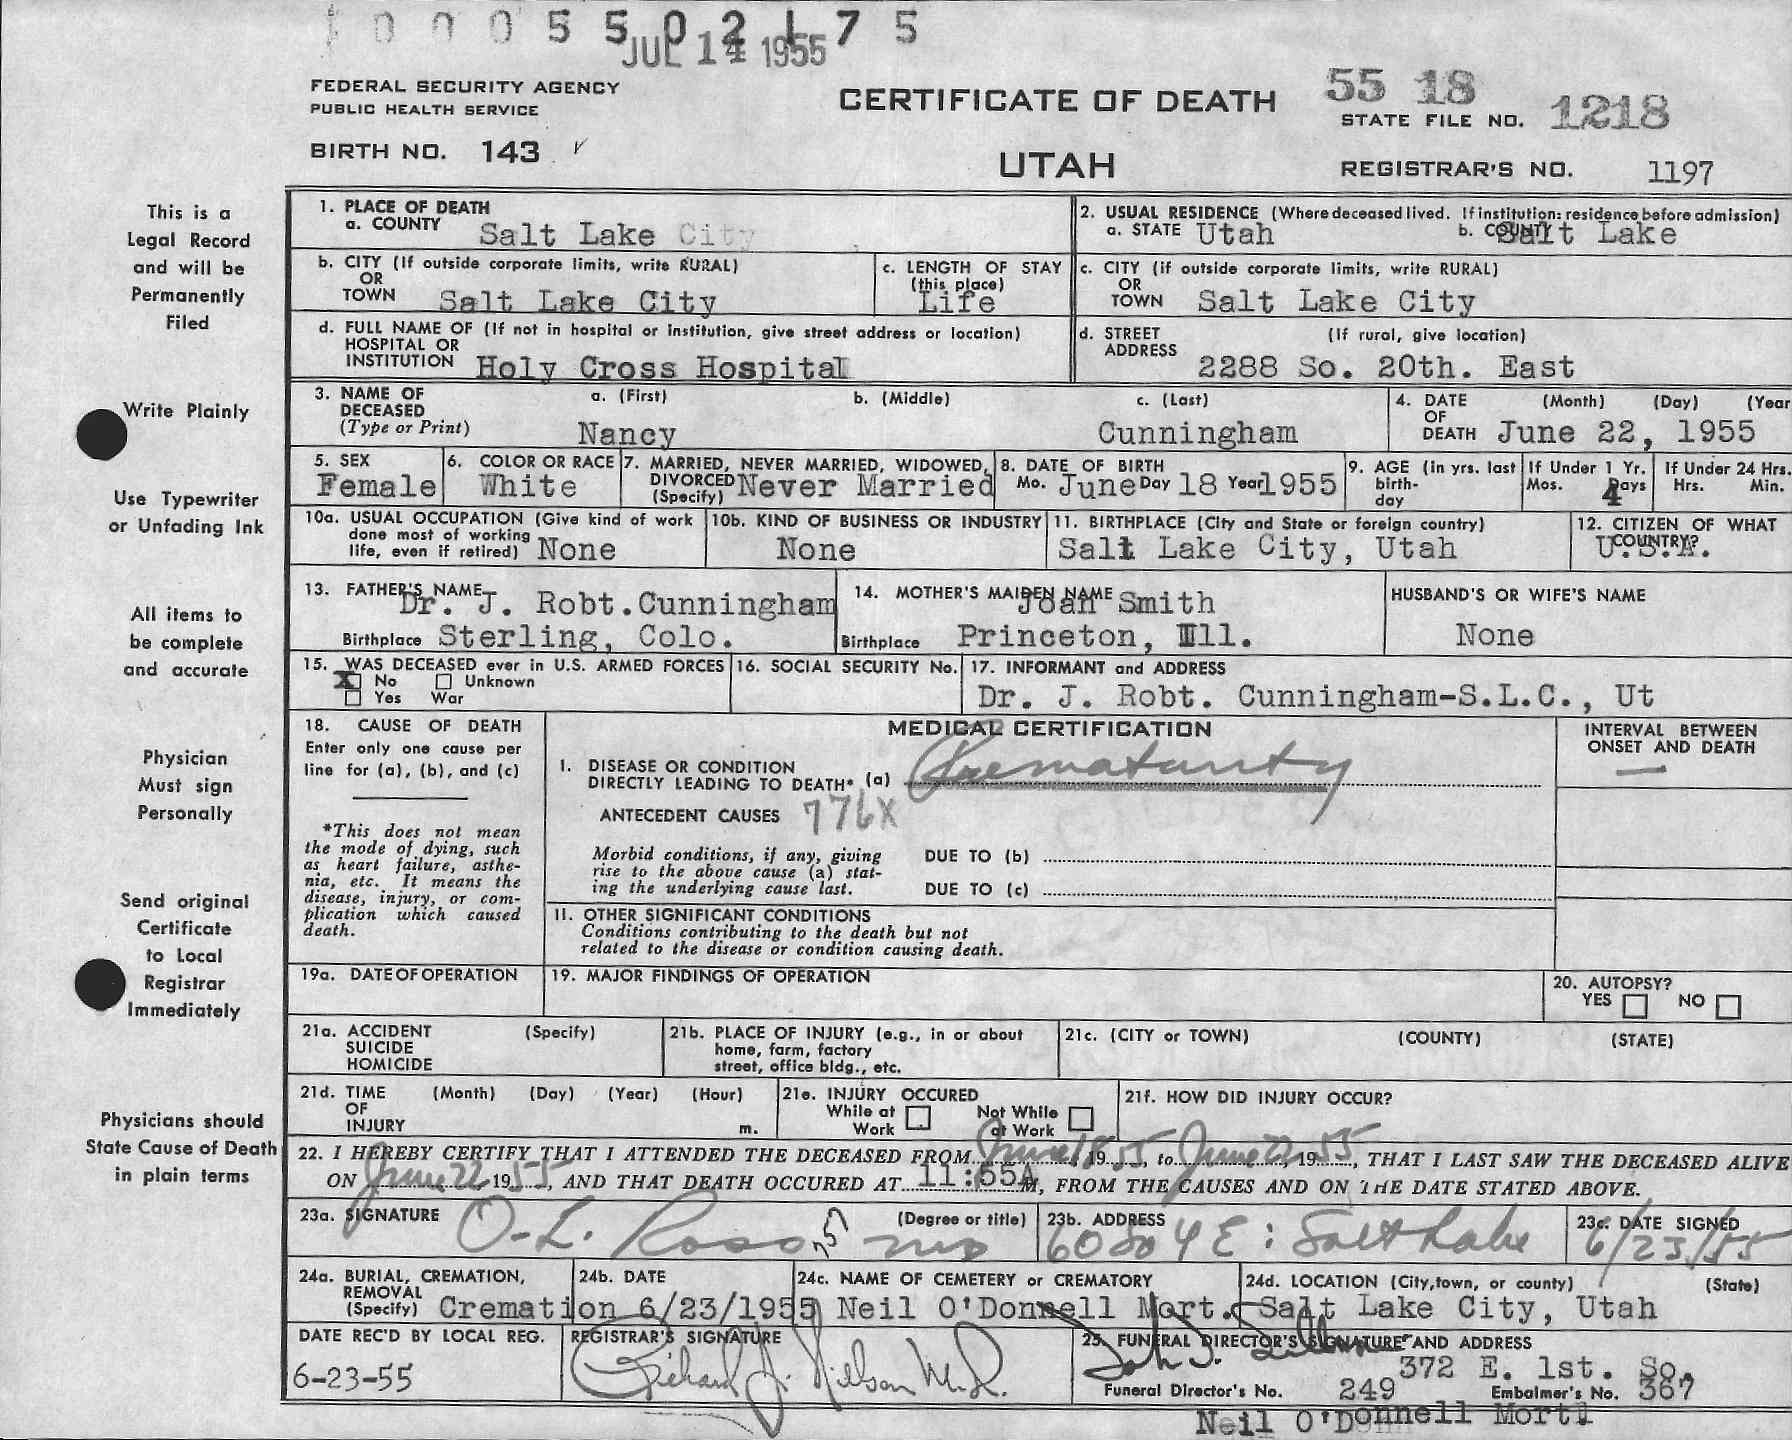 0 0 0 5 5 0 2 1 7 5
JUL 14 1955
FEDERAL SECURITY AGENCY
PUBLIC HEALTH SERVICE
BIRTH NO. 143
CERTIFICATE OF DEATH
UTAH
55 18
STATE FILE NO. 1218
REGISTRAR'S NO. 1197
This is a
Legal Record
and will be
Permanently
Filed
Write Plainly
Use Typewriter
or Unfading Ink
All items to
be complete
and accurate
Physician
Must sign
Personally
Send original
Certificate
to Local
Registrar
Immediately
Physicians should
State Cause of Death
in plain terms
1. PLACE OF DEATH
a. COUNTY Salt Lake City
2. USUAL RESIDENCE (Where deceased lived. If institution: residence before admission)
a. STATE Utah b. COUNTY Salt Lake
b. CITY (If outside corporate limits, write RURAL)
OR
TOWN Salt Lake City
c. LENGTH OF STAY
(this place)
Life
c. CITY (if outside corporate limits, write RURAL)
OR
TOWN Salt Lake City
d. FULL NAME OF (If not in hospital or institution, give street address or location)
HOSPITAL OR
INSTITUTION Holy Cross Hospital
d. STREET (If rural, give location)
ADDRESS
2288 So. 20th. East
3. NAME OF a. (First) b. (Middle) c. (Last)
DECEASED
(Type or Print) Nancy Cunningham
4. DATE (Month) (Day) (Year
OF
DEATH June 22, 1955
5. SEX
Female
6. COLOR OR RACE
White
7. MARRIED, NEVER MARRIED, WIDOWED,
DIVORCED
(Specify) Never Married
8. DATE OF BIRTH
Mo. June Day 18 Year 1955
9. AGE (in yrs. last
birth-
day
If Under 1 Yr.
Mos. Days
4
If Under 24 Hrs.
Hrs. Min.
10a. USUAL OCCUPATION (Give kind of work
done most of working
life, even if retired) None
10b. KIND OF BUSINESS OR INDUSTRY
None
11. BIRTHPLACE (City and State or foreign country)
Salt Lake City, Utah
12. CITIZEN OF WHAT
COUNTRY?
U.S.A.
13. FATHER'S NAME
Dr. J. Robt. Cunningham
Birthplace Sterling, Colo.
14. MOTHER'S MAIDEN NAME
Joan Smith
Birthplace Princeton, Ill.
HUSBAND'S OR WIFE'S NAME
None
15. WAS DECEASED ever in U.S. ARMED FORCES
X No Unknown
Yes War
16. SOCIAL SECURITY No.
17. INFORMANT and ADDRESS
Dr. J. Robt. Cunningham-S.L.C., Ut
18. CAUSE OF DEATH
Enter only one cause per
line for (a), (b), and (c)
*This does not mean
the mode of dying, such
as heart failure, asthe-
nia, etc. It means the
disease, injury, or com-
plication which caused
death.
MEDICAL CERTIFICATION
INTERVAL BETWEEN
ONSET AND DEATH
—
I. DISEASE OR CONDITION
DIRECTLY LEADING TO DEATH* (a) Prematurity
ANTECEDENT CAUSES 776X
Morbid conditions, if any, giving
rise to the above cause (a) stat-
ing the underlying cause last.
DUE TO (b)
DUE TO (c)
II. OTHER SIGNIFICANT CONDITIONS
Conditions contributing to the death but not
related to the disease or condition causing death.
19a. DATE OF OPERATION
19. MAJOR FINDINGS OF OPERATION
20. AUTOPSY?
YES NO
21a. ACCIDENT (Specify)
SUICIDE
HOMICIDE
21b. PLACE OF INJURY (e.g., in or about
home, farm, factory
street, office bldg., etc.
21c. (CITY or TOWN) (COUNTY) (STATE)
21d. TIME (Month) (Day) (Year) (Hour)
OF
INJURY m.
21e. INJURY OCCURED
While at Work Not While at Work
21f. HOW DID INJURY OCCUR?
22. I HEREBY CERTIFY THAT I ATTENDED THE DECEASED FROM June 18, 19 55, to June 22, 19 55, THAT I LAST SAW THE DECEASED ALIVE
ON June 22, 19 55, AND THAT DEATH OCCURED AT 11:55A M, FROM THE CAUSES AND ON THE DATE STATED ABOVE.
23a. SIGNATURE (Degree or title)
O-L. Ross MD
23b. ADDRESS
Salt Lake
23c. DATE SIGNED
6/23/55
24a. BURIAL, CREMATION,
REMOVAL
(Specify) Cremation
24b. DATE
6/23/1955
24c. NAME OF CEMETERY or CREMATORY
Neil O'Donnell Mort.
24d. LOCATION (City, town, or county) (State)
Salt Lake City, Utah
DATE REC'D BY LOCAL REG.
6-23-55
REGISTRAR'S SIGNATURE
Richard J. Nielson M.D.
25. FUNERAL DIRECTOR'S SIGNATURE AND ADDRESS
372 E. 1st. So.
Funeral Director's No. 249 Embalmer's No. 367
Neil O'Donnell Mort.